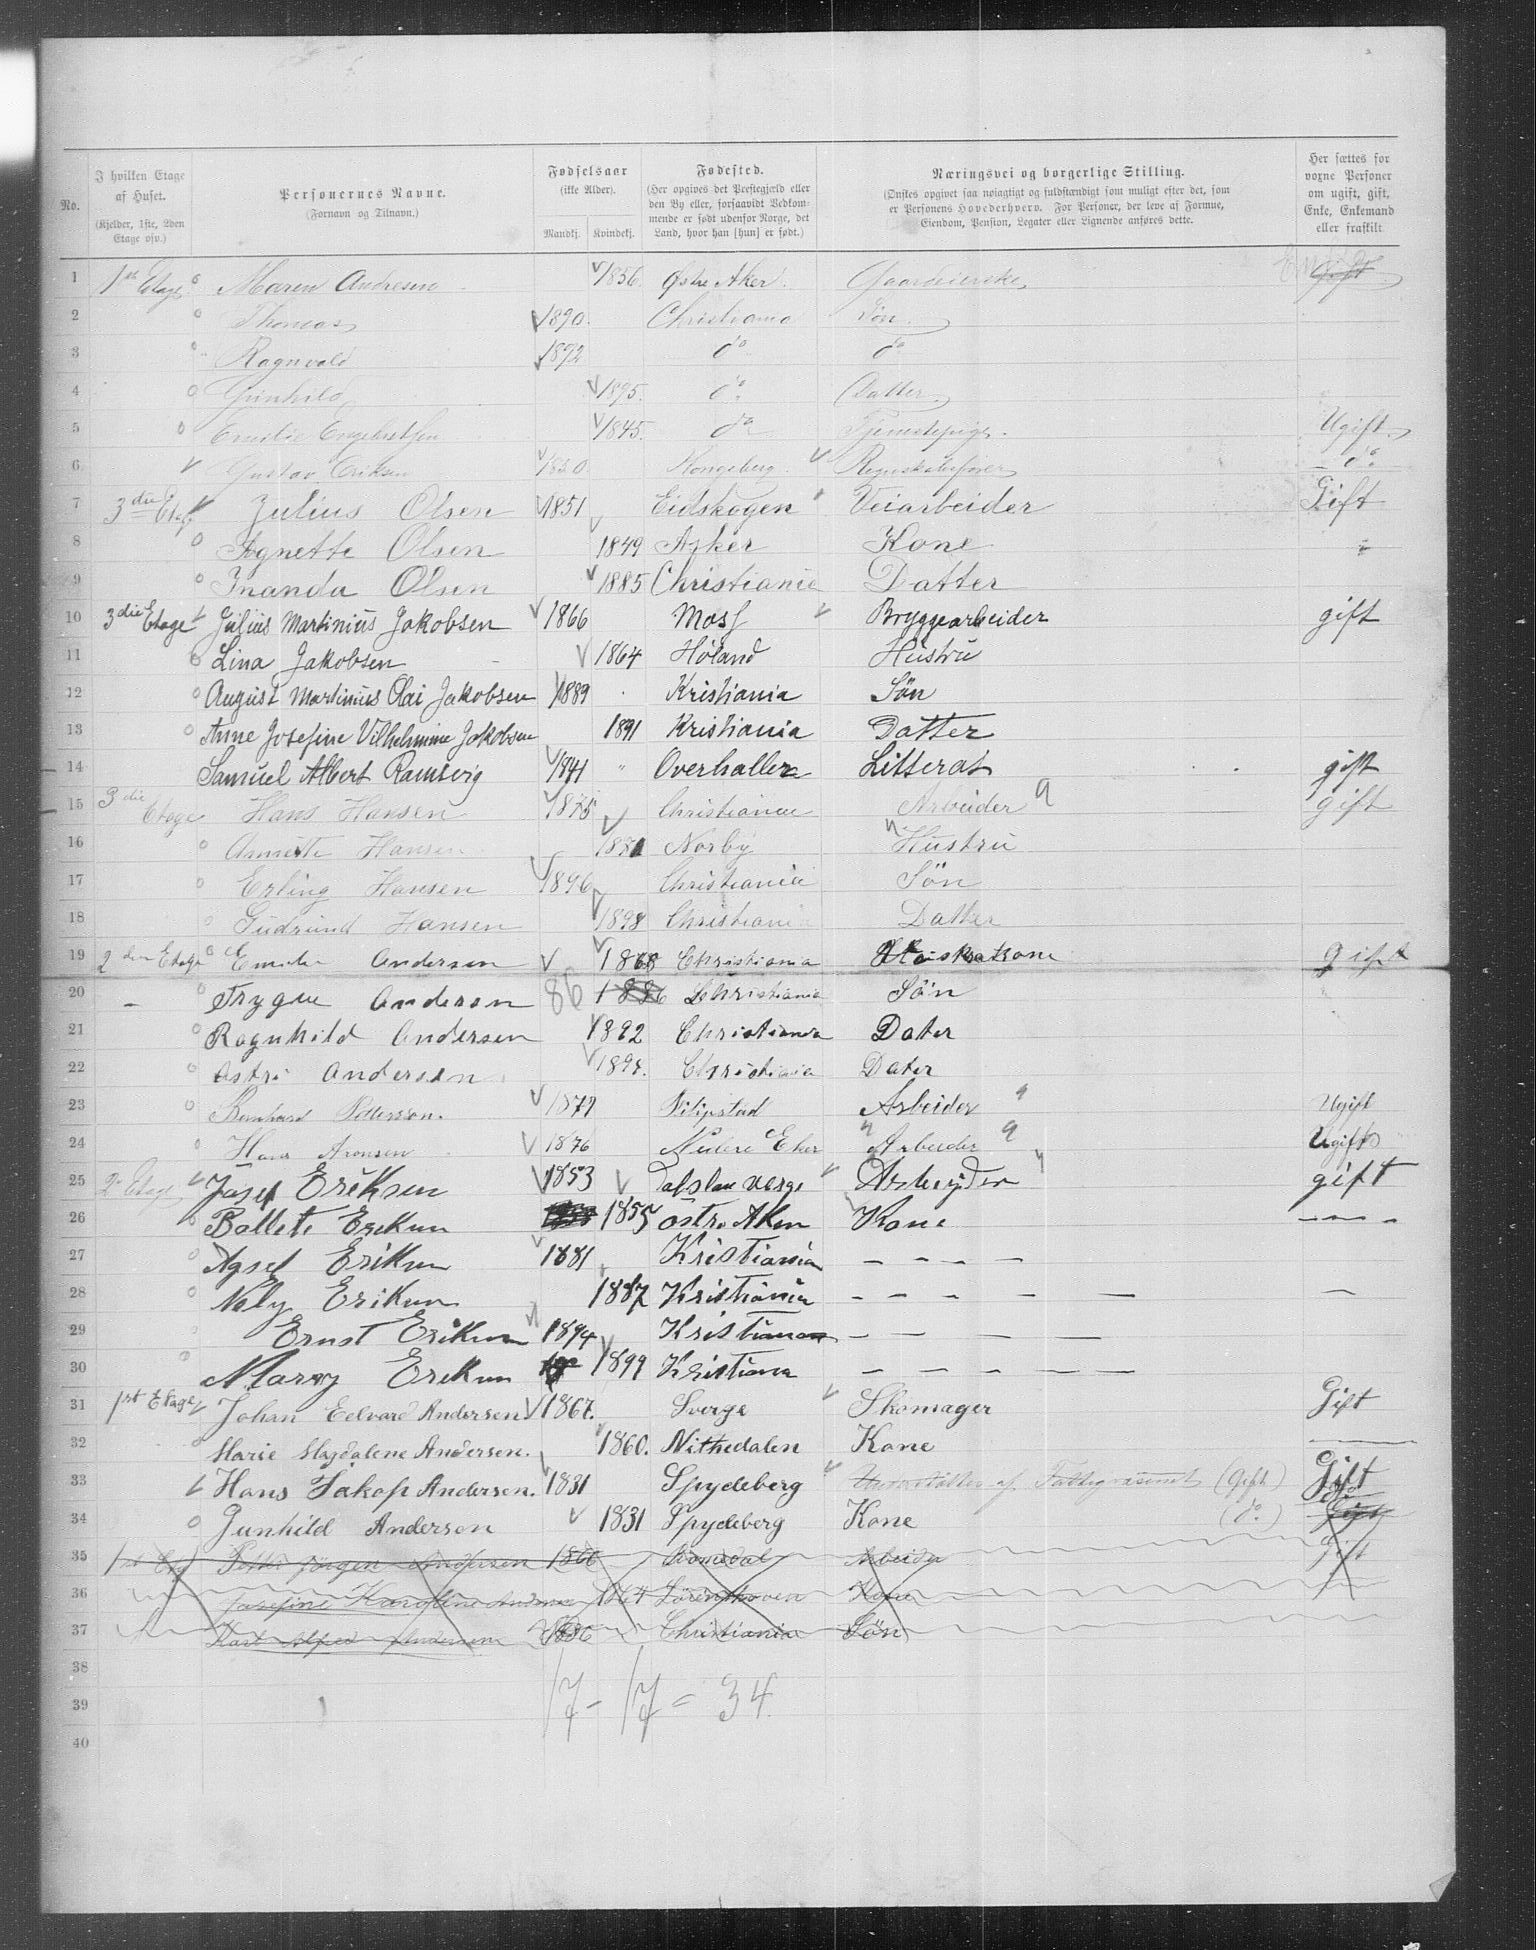 No. | I hvilken Etage af Huset. (Kjelder, 1ste, 2den Etage osv.) | Personernes Navne. (Fornavn og Tilnavn.) | Fødselsaar (ikke Alder). Mandkj. Kvindekj. | Fødested. (Her opgives det Præstegjæld eller den By eller, forsaavidt Vedkommende er født udenfor Norge, det Land, hvor han [hun] er født.) | Næringsvei og borgerlige Stilling. (Ønskes opgivet saa nøiagtigt og fuldstændigt som muligt efter det, som er Personens Hovederhverv. For Personer, der leve af Formue, Eiendom, Pension, Legater eller Lignende anføres dette. | Her sættes for voxne Personer om ugift, gift, Enke, Enkemand eller fraskilt
1 1ste Etage Maren Andresen 1856 Østre Aker Gaardeierske Gift
2 Thomas 1890. Christiania Søn
3 Ragnvald 1892 do do
4 Gunhild 1895. do Datter.
5 Emilie Engebretsen 1845. do Tjenestepige. Ugift.
6 Gustav Eriksen 1850. Kongsberg. Regnskabsfører do
7 3die Etage Julius Olsen 1851 Eidskogen Veiarbeider Gift
8 Agnette Olsen 1849 Asker Kone
9 Inanda Olsen 1885 Christiania Datter
10 3die Etage Julius Martinius Jakobsen 1866 Moss Bryggearbeider gift
11 Lina Jakobsen 1864 Høland Hustru
12 August Martinius Olai Jakobsen 1889 Kristiania Søn
13 Anne Josefine Vilhelmine Jakobsen 1891 Kristiania Datter
14 Samuel Albert Ramsvig 1841 Overhallen Litterat gift
15 3die Etage Hans Hansen 1875 Christiania Arbeider gift
16 Annette Hansen Norby Hustru
17 Erling Hansen 1896 Christiania Søn
18 Gudrund Hansen 1898 Christiania Datter
19 2den Etage Emilie Andersen 1868 Christiania gift
20 Trygve Anderson 86 1886 Christiania Søn
21 Ragnhild Andersen 1892 Christiania Dater
22 Astri Andersen 189. Christiania Dater
23 Bernhard Pettersson. 1879 Filipstad Arbeider Ugift
24 Hans Aronsen 1876 Nedere Eker Arbeider Ugift
25 2 Etage Josef Eriksen 1853 gift
26 Eriksen 1855 Østre Aker Kone
27 Agsel Eriksen 1881 Kristiania
28 Nely Eriksen 1887 Kristiania
29 Ernst Eriksen 1894 Kristiania
30 Marry Eriksen 1899 Kristiania
31 1st Etage Johan Edvard Andersen 1867. Sverge Skomager Gift
32 Marie Magdalene Andersen. 1860. Nittedalen Kone
33 Hans Jakop Andersen. 1831 Spydeberg Understøttes af Fattigvæsenet (Gift) Gift
34 Gunhild Andersen 1831 Spydeberg Kone (do.) Gift
35 1st Etg Petter Jørgen Andersen 1866 Romsdal Arbeider Gift
36 Josefine Karoline Andersen 1864 Lørenskoven Kone
37 Karl Alfred Andersen 1886 Christiania Søn
38
39 17 - 17 = 34.
40